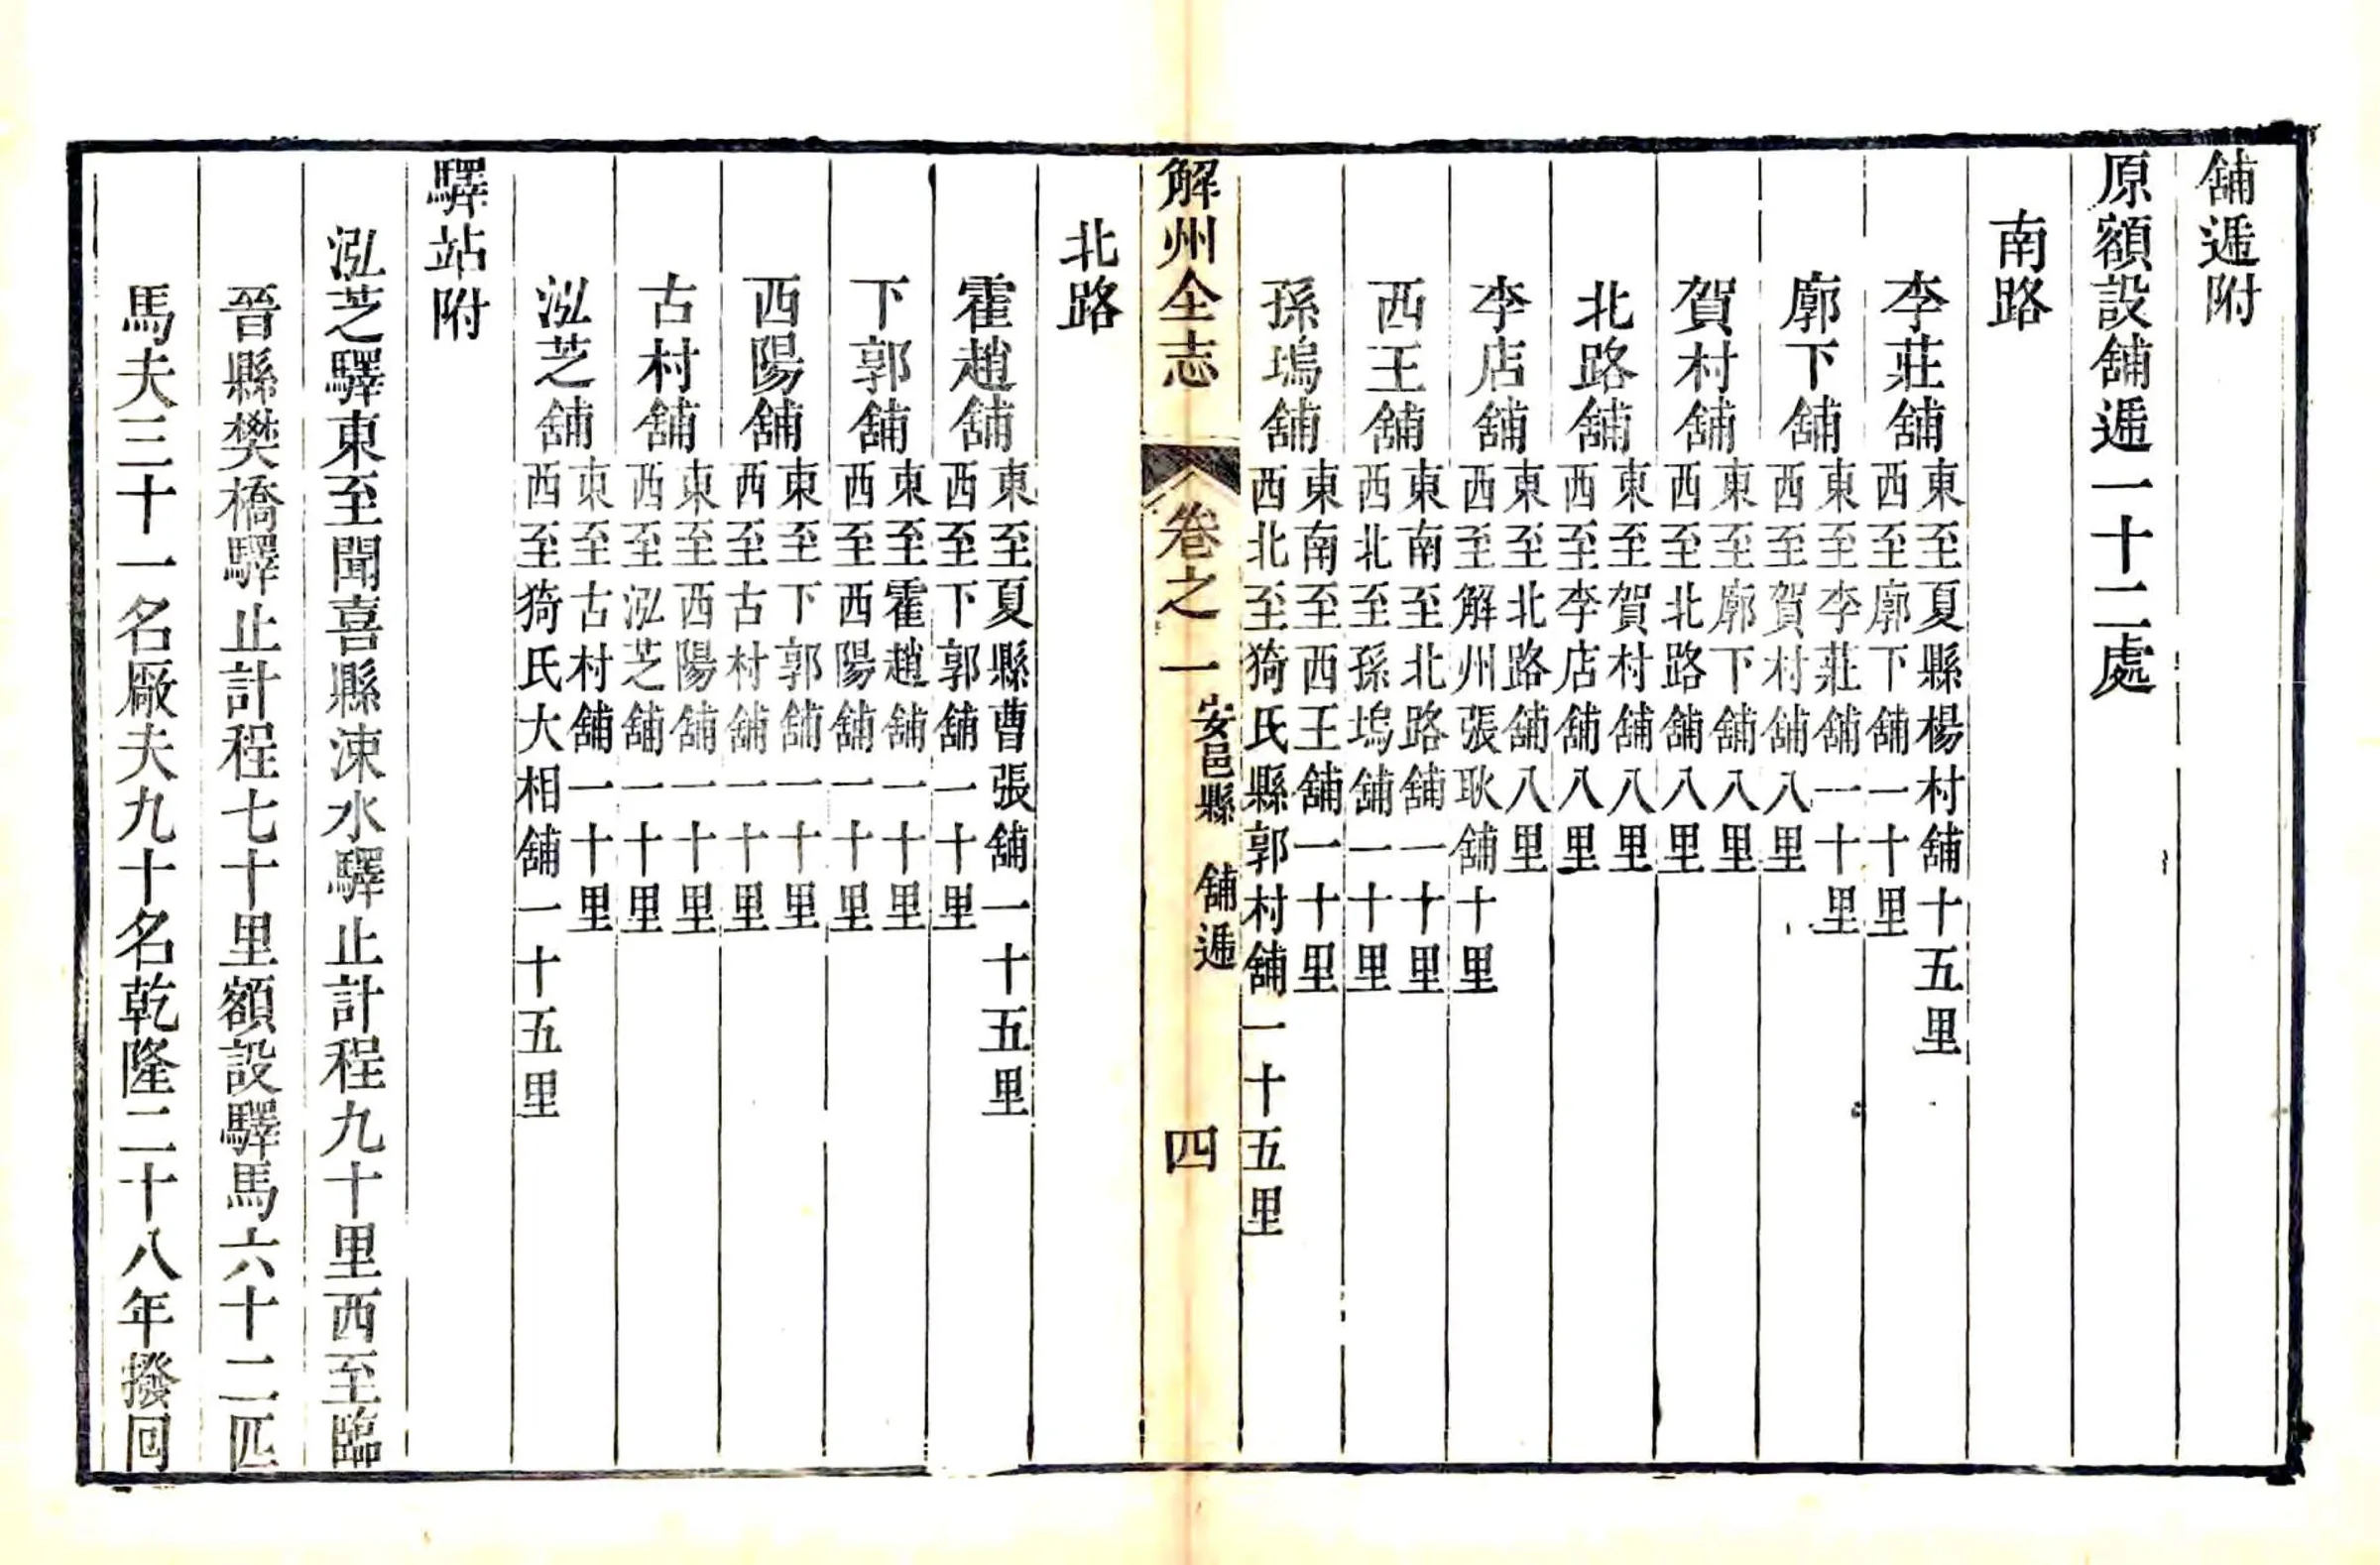 舖遞附
原額設舖遞一十二處
南路
李莊舖
東至夏縣楊村舖十五里
西至廓下舖一十里
廓下舖
東至李莊舖一十里
西至賀村舖八里
賀村舖
東至廓下舖八里
西至北路舖八里
北路舖
東至賀村舖八里
西至李店舖八里
李店舖
東至北路舖八里
西至解州張耿舖十里
西王舖
東南至北路舖一十里
西北至孫塢舖一十里
孫塢舖
東南至西王舖一十里
西北至猗氏縣郭村舖一十五里
解州全志
卷之一
安邑縣 舖遞
四
北路
霍趙舖
東至夏縣曹張舖一十五里
西至下郭舖一十里
下郭舖
東至霍趙舖一十里
西至西陽舖一十里
西陽舖
東至下郭舖一十里
西至古村舖一十里
古村舖
東至西陽舖一十里
西至泓芝舖一十里
泓芝舖
東至古村舖一十里
西至猗氏大相舖一十五里
驛站附
泓芝驛東至聞喜縣涑水驛止計程九十里西至臨
晉縣樊橋驛止計程七十里額設驛馬六十二匹
馬夫三十一名厰夫九十名乾隆二十八年撥回